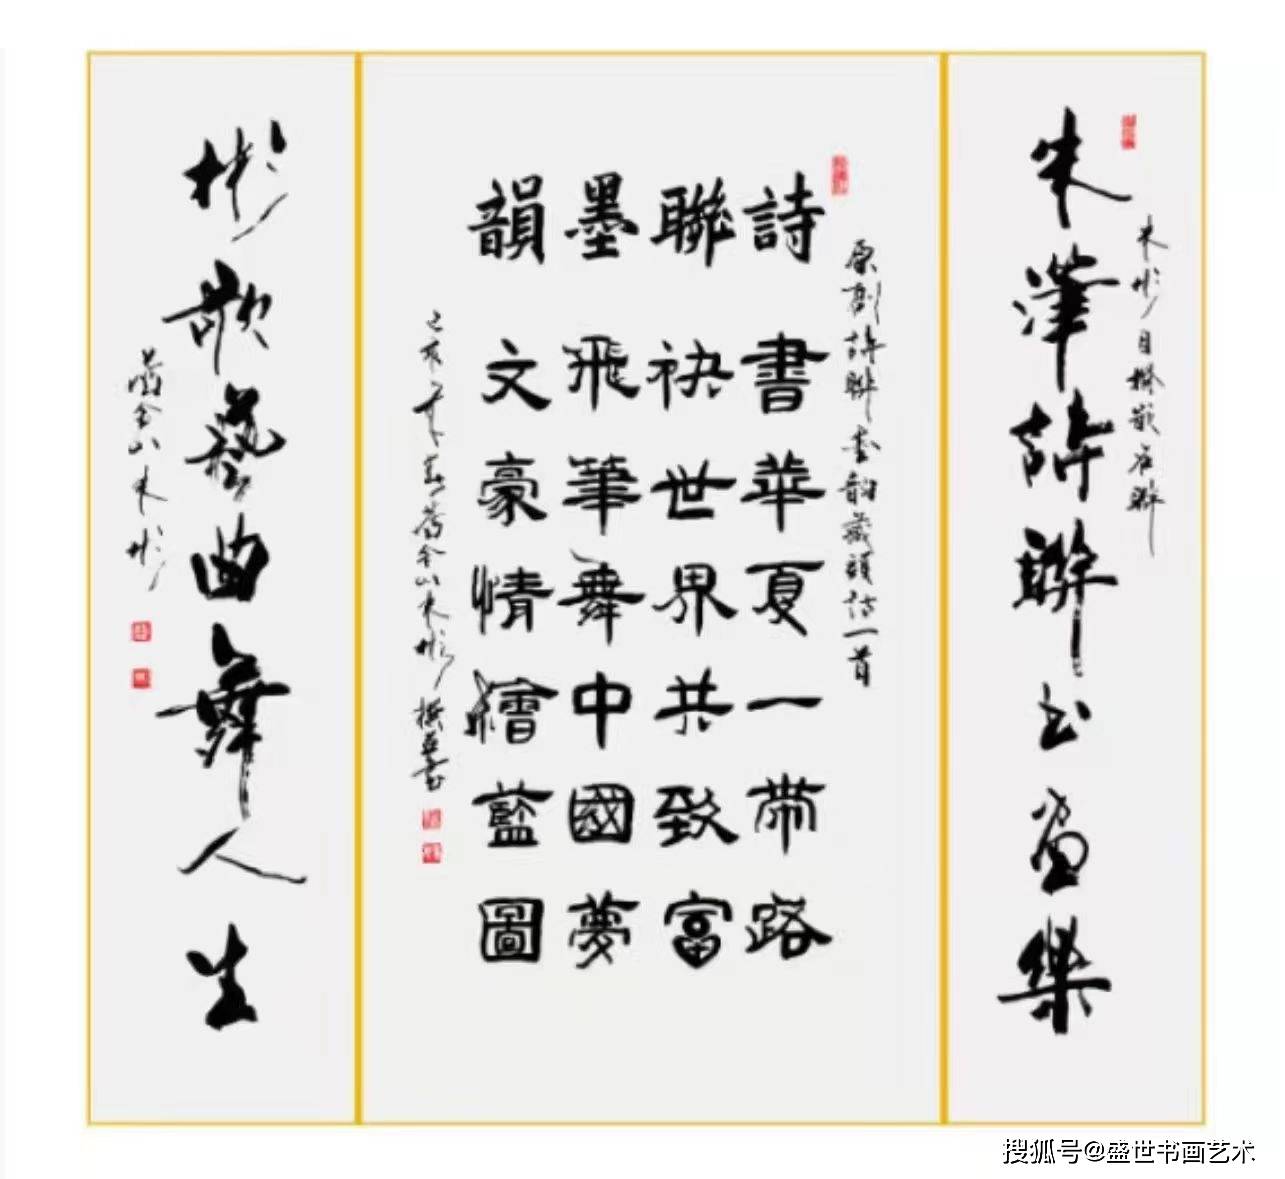 朱彬自撰嵌名聯
朱澤詩聯书畫樂
原創詩聯墨韵藏頭詩一首
詩書華夏一帶路
聯袂世界共致富
墨飛筆舞中國夢
韻文豪情繪藍圖
己亥年春舊金山朱彬撰並書
彬歌藝曲舞人生
舊金山朱彬
搜狐号@盛世书画艺术